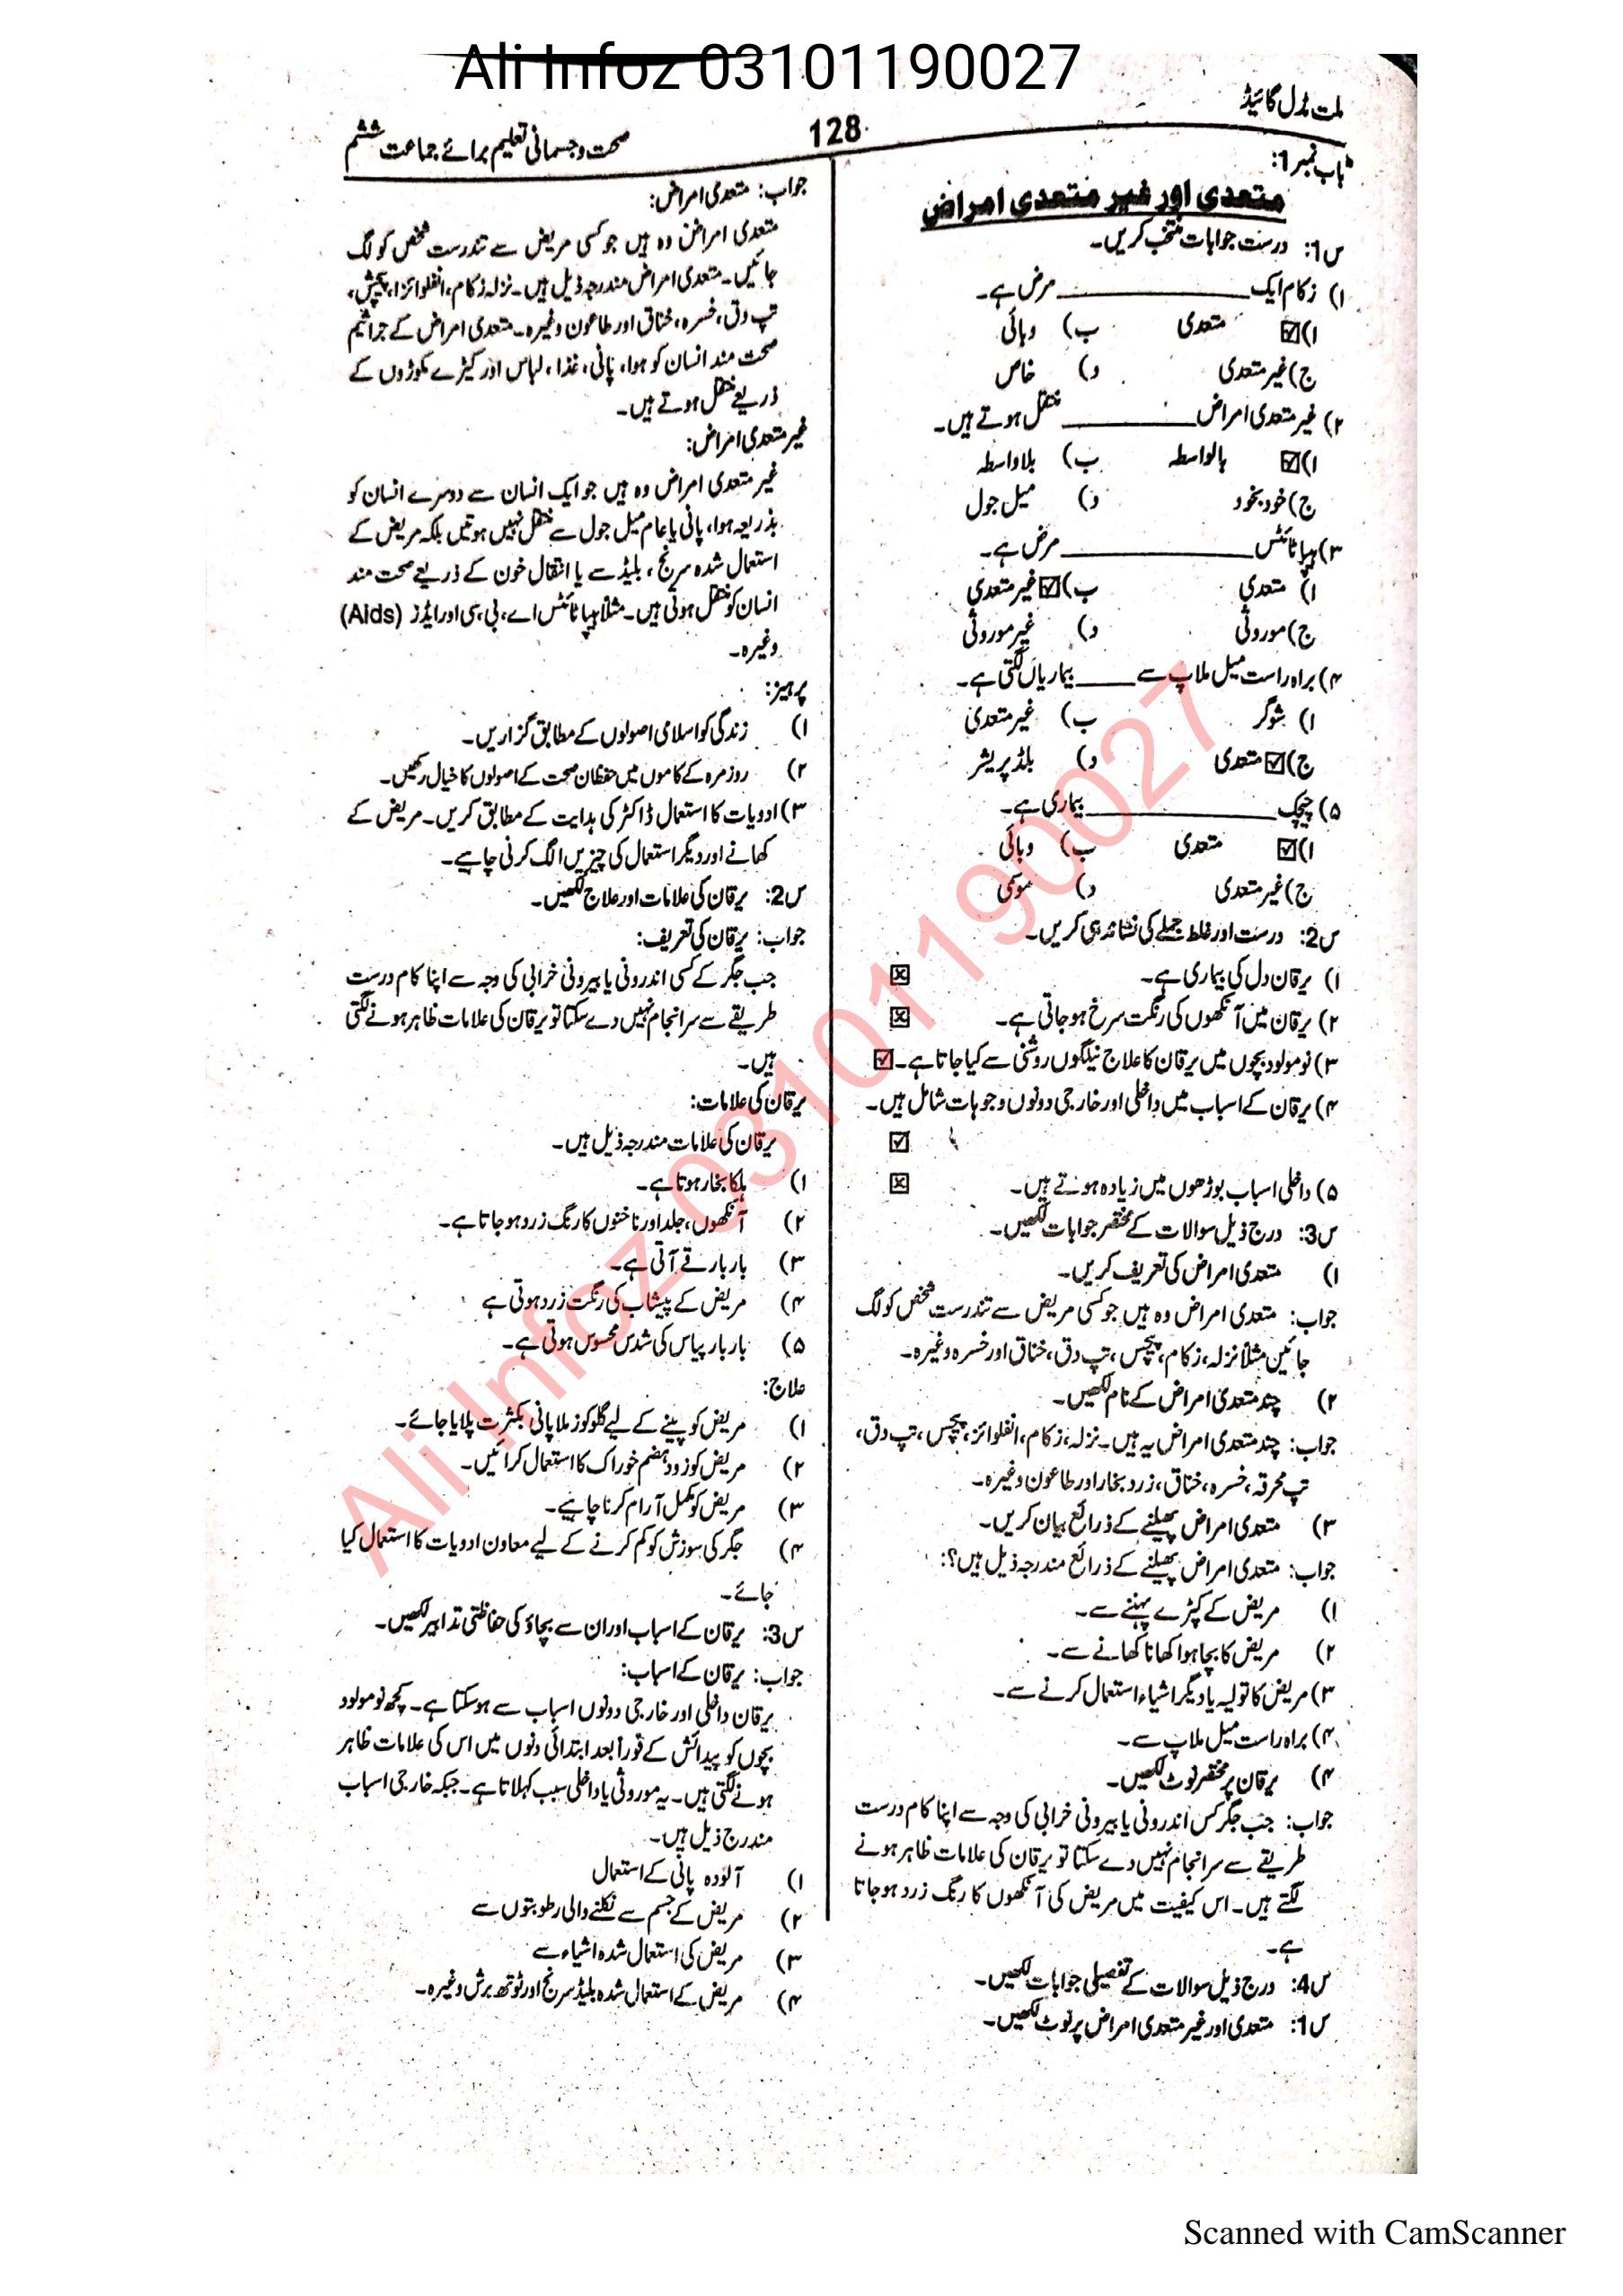 Ali Infoz 03101190027
ملت مڈل گائیڈ
128
صحت و جسمانی تعلیم برائے جماعت ششم
باب نمبر 1:
متعدی اور غیر متعدی امراض
س1: درست جوابات منتخب کریں۔
۱) زکام ایک ______ مرض ہے۔
ا) ☑ متعدی ب) وبائی
ج) غیر متعدی د) خاص
۲) غیر متعدی امراض ______ منتقل ہوتے ہیں۔
ا) ☑ بالواسطہ ب) بلاواسطہ
ج) خود بخود د) میل جول
۳) ہیپاٹائٹس ______ مرض ہے۔
ا) متعدی ب) ☑ غیر متعدی
ج) موروثی د) غیر موروثی
۴) براہ راست میل ملاپ سے ______ بیماریاں لگتی ہے۔
ا) شوگر ب) غیر متعدی
ج) ☑ متعدی د) بلڈ پریشر
۵) چیچک ______ بیماری ہے۔
ا) ☑ متعدی ب) وبائی
ج) غیر متعدی د) موسمی
س2: درست اور غلط جملے کی نشاندہی کریں۔
۱) یرقان دل کی بیماری ہے۔ ☒
۲) یرقان میں آنکھوں کی رنگت سرخ ہو جاتی ہے۔ ☒
۳) نومولود بچوں میں یرقان کا علاج نیلگوں روشنی سے کیا جاتا ہے۔ ☑
۴) یرقان کے اسباب میں داخلی اور خارجی دونوں وجوہات شامل ہیں۔
☑
۵) داخلی اسباب بوڑھوں میں زیادہ ہوتے ہیں۔ ☒
س3: درج ذیل سوالات کے مختصر جوابات لکھیں۔
۱) متعدی امراض کی تعریف کریں۔
جواب: متعدی امراض وہ ہیں جو کسی مریض سے تندرست شخص کو لگ
جائیں مثلاً نزلہ، زکام، پیچس، تپ دق، خناق اور خسرہ وغیرہ۔
۲) چند متعدی امراض کے نام لکھیں۔
جواب: چند متعدی امراض یہ ہیں۔ نزلہ، زکام، انفلوائز، پیچس، تپ دق،
تپ محرقہ، خسرہ، خناق، زرد بخار اور طاعون وغیرہ۔
۳) متعدی امراض پھیلنے کے ذرائع بیان کریں۔
جواب: متعدی امراض پھیلنے کے ذرائع مندرجہ ذیل ہیں؟:
۱) مریض کے کپڑے پہننے سے۔
۲) مریض کا بچا ہوا کھانا کھانے سے۔
۳) مریض کا تولیہ یا دیگر اشیاء استعمال کرنے سے۔
۴) براہ راست میل ملاپ سے۔
۴) یرقان پر مختصر نوٹ لکھیں۔
جواب: جب جگر کس اندرونی یا بیرونی خرابی کی وجہ سے اپنا کام درست
طریقے سے سرانجام نہیں دے سکتا تو یرقان کی علامات ظاہر ہونے
لگتے ہیں۔ اس کیفیت میں مریض کی آنکھوں کا رنگ زرد ہو جاتا
ہے۔
س4: درج ذیل سوالات کے تفصیلی جوابات لکھیں۔
س1: متعدی اور غیر متعدی امراض پر نوٹ لکھیں۔
جواب: متعدی امراض:
متعدی امراض وہ ہیں جو کسی مریض سے تندرست شخص کو لگ
جائیں۔ متعدی امراض مندرجہ ذیل ہیں۔ نزلہ زکام، انفلوائزا، پیچش،
تپ دق، خسرہ، خناق اور طاعون وغیرہ۔ متعدی امراض کے جراثیم
صحت مند انسان کو ہوا، پانی، غذا، لباس اور کیڑے مکوڑوں کے
ذریعے منتقل ہوتے ہیں۔
غیر متعدی امراض:
غیر متعدی امراض وہ ہیں جو ایک انسان سے دوسرے انسان کو
بذریعہ ہوا، پانی یا عام میل جول سے منتقل نہیں ہوتیں بلکہ مریض کے
استعمال شدہ سرنج، بلیڈ سے یا انتقال خون کے ذریعے صحت مند
انسان کو منتقل ہوتی ہیں۔ مثلاً ہیپاٹائٹس اے، بی، سی اور ایڈز (Aids)
وغیرہ۔
پرہیز:
۱) زندگی کو اسلامی اصولوں کے مطابق گزاریں۔
۲) روزمرہ کے کاموں میں حفظان صحت کے اصولوں کا خیال رکھیں۔
۳) ادویات کا استعمال ڈاکٹر کی ہدایت کے مطابق کریں۔ مریض کے
کھانے اور دیگر استعمال کی چیزیں الگ کرنی چاہیے۔
س2: یرقان کی علامات اور علاج لکھیں۔
جواب: یرقان کی تعریف:
جب جگر کے کسی اندرونی یا بیرونی خرابی کی وجہ سے اپنا کام درست
طریقے سے سرانجام نہیں دے سکتا تو یرقان کی علامات ظاہر ہونے لگتی
ہیں۔
یرقان کی علامات:
یرقان کی علامات مندرجہ ذیل ہیں۔
۱) ہلکا بخار ہوتا ہے۔
۲) آنکھوں، جلد اور ناخنوں کا رنگ زرد ہو جاتا ہے۔
۳) بار بار قے آتی ہے۔
۴) مریض کے پیشاب کی رنگت زرد ہوتی ہے
۵) بار بار پیاس کی شدس محسوس ہوتی ہے۔
علاج:
۱) مریض کو پینے کے لیے گلوکوز ملا پانی بکثرت پلایا جائے۔
۲) مریض کو زود ہضم خوراک کا استعمال کرائیں۔
۳) مریض کو مکمل آرام کرنا چاہیے۔
۴) جگر کی سوزش کو کم کرنے کے لیے معاون ادویات کا استعمال کیا
جائے۔
س3: یرقان کے اسباب اور ان سے بچاؤ کی حفاظتی تدابیر لکھیں۔
جواب: یرقان کے اسباب:
یرقان داخلی اور خارجی دونوں اسباب سے ہو سکتا ہے۔ کچھ نومولود
بچوں کو پیدائش کے فوراً بعد ابتدائی دنوں میں اس کی علامات ظاہر
ہونے لگتی ہیں۔ یہ موروثی یا داخلی سبب کہلاتا ہے۔ جبکہ خارجی اسباب
مندرج ذیل ہیں۔
۱) آلودہ پانی کے استعمال
۲) مریض کے جسم سے نکلنے والی رطوبتوں سے
۳) مریض کی استعمال شدہ اشیاء سے
۴) مریض کے استعمال شدہ بلیڈ سرنج اور ٹوتھ برش وغیرہ۔
Ali Infoz 03101190027
Scanned with CamScanner